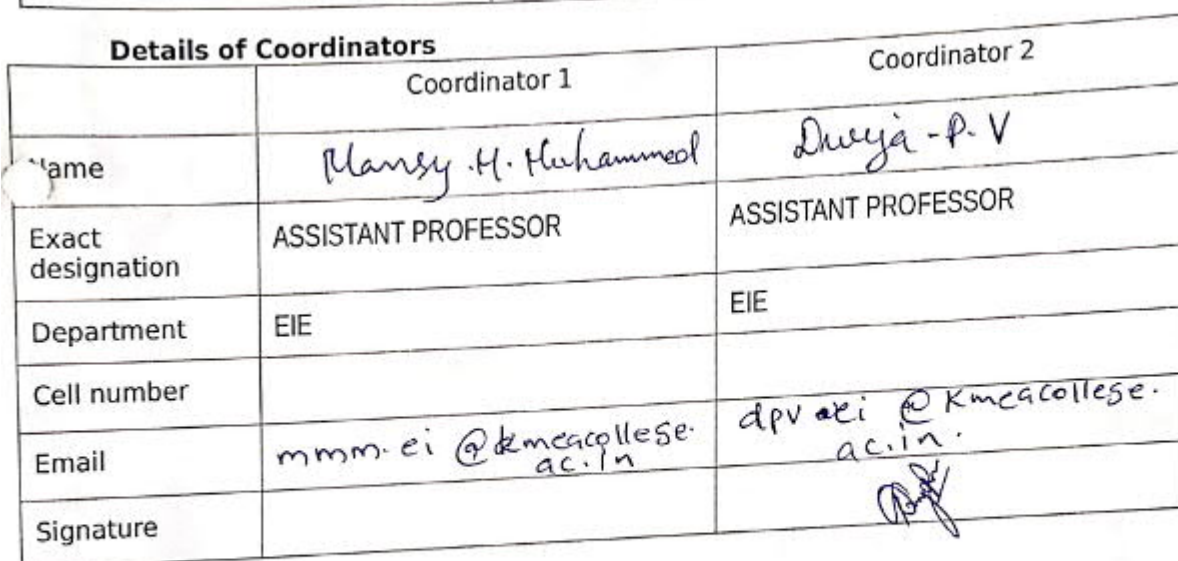 Details of Coordinators
Coordinator 1 Coordinator 2
Name Mansy .M. Muhammed Dwija - P. V
Exact designation ASSISTANT PROFESSOR ASSISTANT PROFESSOR
Department EIE EIE
Cell number
Email mmm.ei @kmeacollege. ac.in @ kmeacollege. ac.in.
Signature